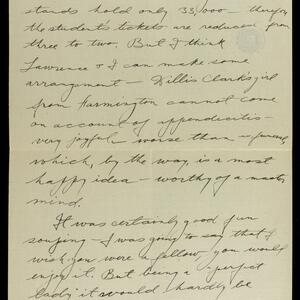 stands hold only 33,000 – therefore
the student's tickets are reduced from
three to two. But I think
Lawrence & I can make some
arrangment – Willis Clark's girl
from Farmington cannot come
on account of appendicitis –
very joyful – worse than –
which, by the way, is a most
happy idea – worthy of a master
mind.
It was certainly good fun
songing – I was going to say that I
wish you were a fellow, you would
enjoy it. But being a "perfect
lady" it would hardly be